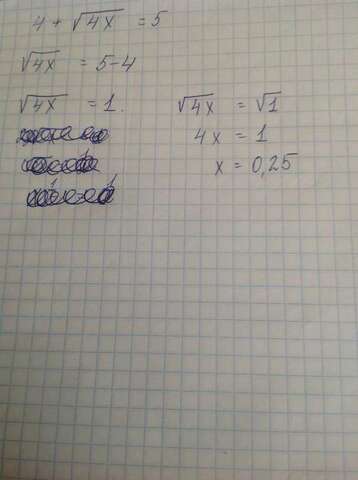 4 + √4x = 5
√4x = 5-4
√4x = 1.
√4x = √1
4x = 1
x = 0,25